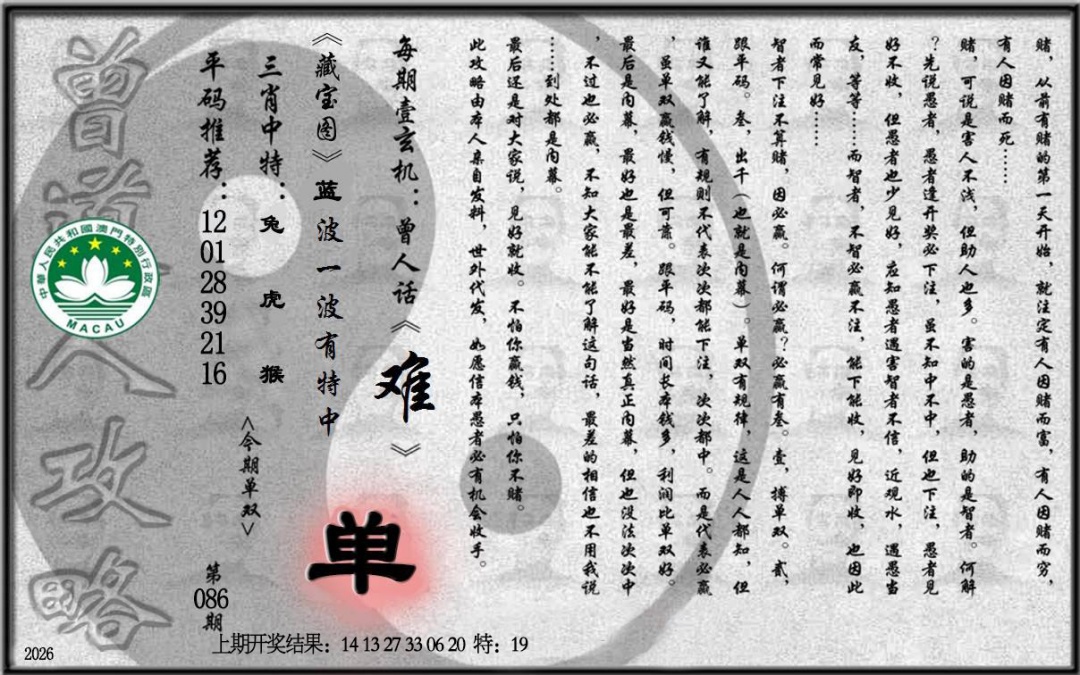 赌，从前有赌的第一天开始，就注定有人因赌而富，有人因赌而穷，
有人因赌而死……
赌，可说是害人不浅，但助人也多。害的是愚者，助的是智者。何解
？先说愚者，愚者逢开奖必下注，虽不知中不中，但也下注，愚者见
好不收，但愚者也少见好，应知愚者遇害智者不信，近观水，遇愚当
友，等等……而智者，不智必赢不注，能下能收，见好即收，也因此
而常见好……
智者下注不算赌，因必赢。何谓必赢？必赢有叁。壹，搏单双。贰，
跟单码。叁，出千（也就是内幕）。单双有规律，这是人人都知，但
谁又能了解，有规则不代表次次都能下注，次次都中。而是代表必赢
，虽单双赢钱慢，但可靠。跟单码，时间长本钱多，利润比单双好。
最后是内幕，最好也是最差，最好是当然真正内幕，但也没法次次中
，不过也必赢，不知大家能不能了解这句话，最差的相信也不用我说
……到处都是内幕。
最后还是对大家说，见好就收。不怕你赢钱，只怕你不赌。
此攻略由本人亲自发料，世外代发，如愿信本愚者必有机会收手。
每期壹玄机：曾人话《难》
《藏宝图》蓝波一波有特中
单
三肖中特：兔 虎 猴
<今期单双>
平码推荐：12 01 28 39 21 16
第086期
曾道人攻略
中華人民共和國澳門特別行政區
MACAU
上期开奖结果：14 13 27 33 06 20 特：19
2026